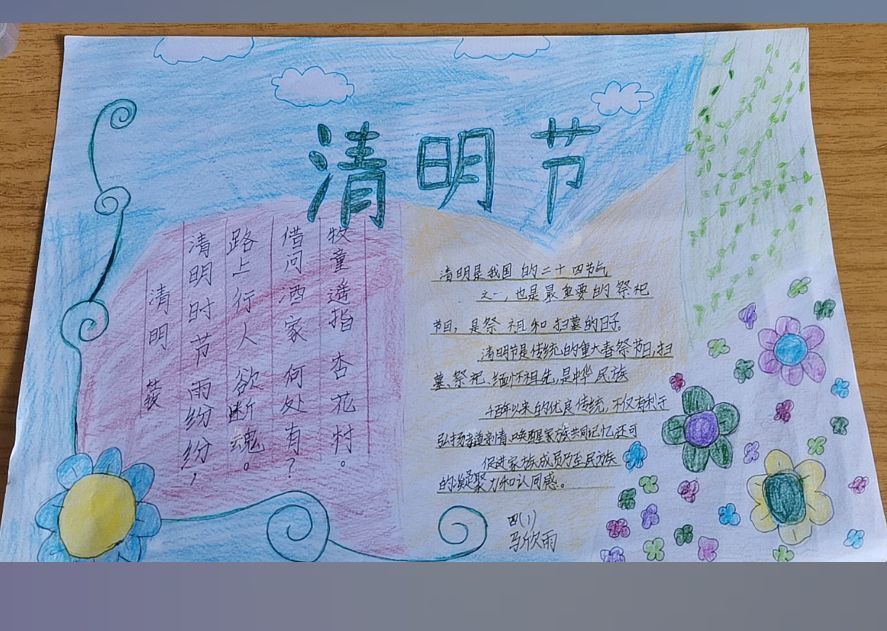 清明节
清明
清明时节雨纷纷,
路上行人欲断魂。
借问酒家何处有?
牧童遥指杏花村。
清明是我国的二十四节气
之一,也是最重要的祭祀
节日,是祭祖和扫墓的日子。
清明节是传统的重大春祭节日,扫
墓、祭祀、缅怀祖先,是中华民族
千百年以来的优良传统,不仅有利于
弘扬孝道亲情、唤醒家族共同记忆还可
促进家族成员乃至民族
的凝聚力和认同感。
四(1)
马欣雨